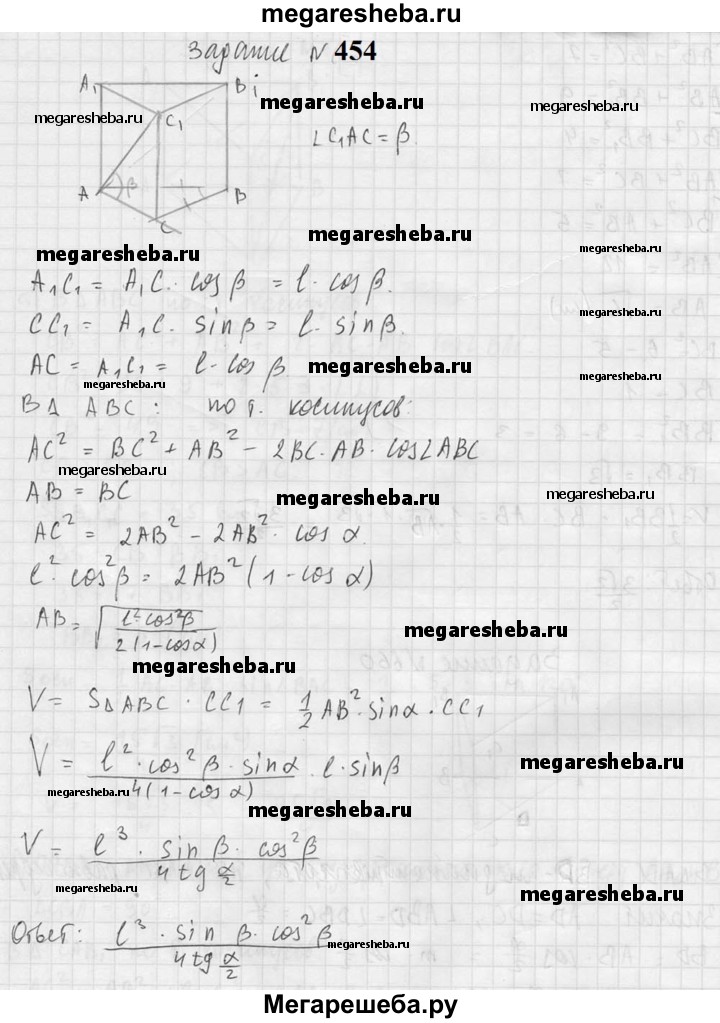 megaresheba.ru
Задание N 454
A₁ B₁
megaresheba.ru
megaresheba.ru C₁ ∠C₁AC = β.
A β B
C
megaresheba.ru
megaresheba.ru
A₁C₁ = A₁C · cos β = l · cos β.
CC₁ = A₁C · sin β = l · sin β.
AC = A₁C₁ = l · cos β
megaresheba.ru
megaresheba.ru
В Δ ABC : по т. косинусов:
AC² = BC² + AB² - 2BC · AB · cos∠ABC
megaresheba.ru
AB = BC
megaresheba.ru
megaresheba.ru
AC² = 2AB² - 2AB² · cos α.
l² · cos²β = 2AB² (1 - cos α)
AB = √(l²·cos²β / 2(1-cosα))
megaresheba.ru
megaresheba.ru
V = SΔABC · CC₁ = 1/2 AB² · sinα · CC₁
V = l² · cos²β · sinα / 4(1-cosα) · l · sinβ
megaresheba.ru
megaresheba.ru
megaresheba.ru
V = l³ · sin β · cos²β / 4 tg α/2
megaresheba.ru
megaresheba.ru
Ответ: l³ · sin β · cos²β / 4 tg α/2
megaresheba.ru
Мегарешеба.ру